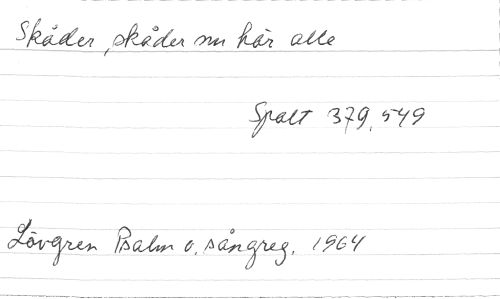 Skåder, skåder nu här alle
Spalt 379, 549
Lövgren Psalm o. sångreg. 1964